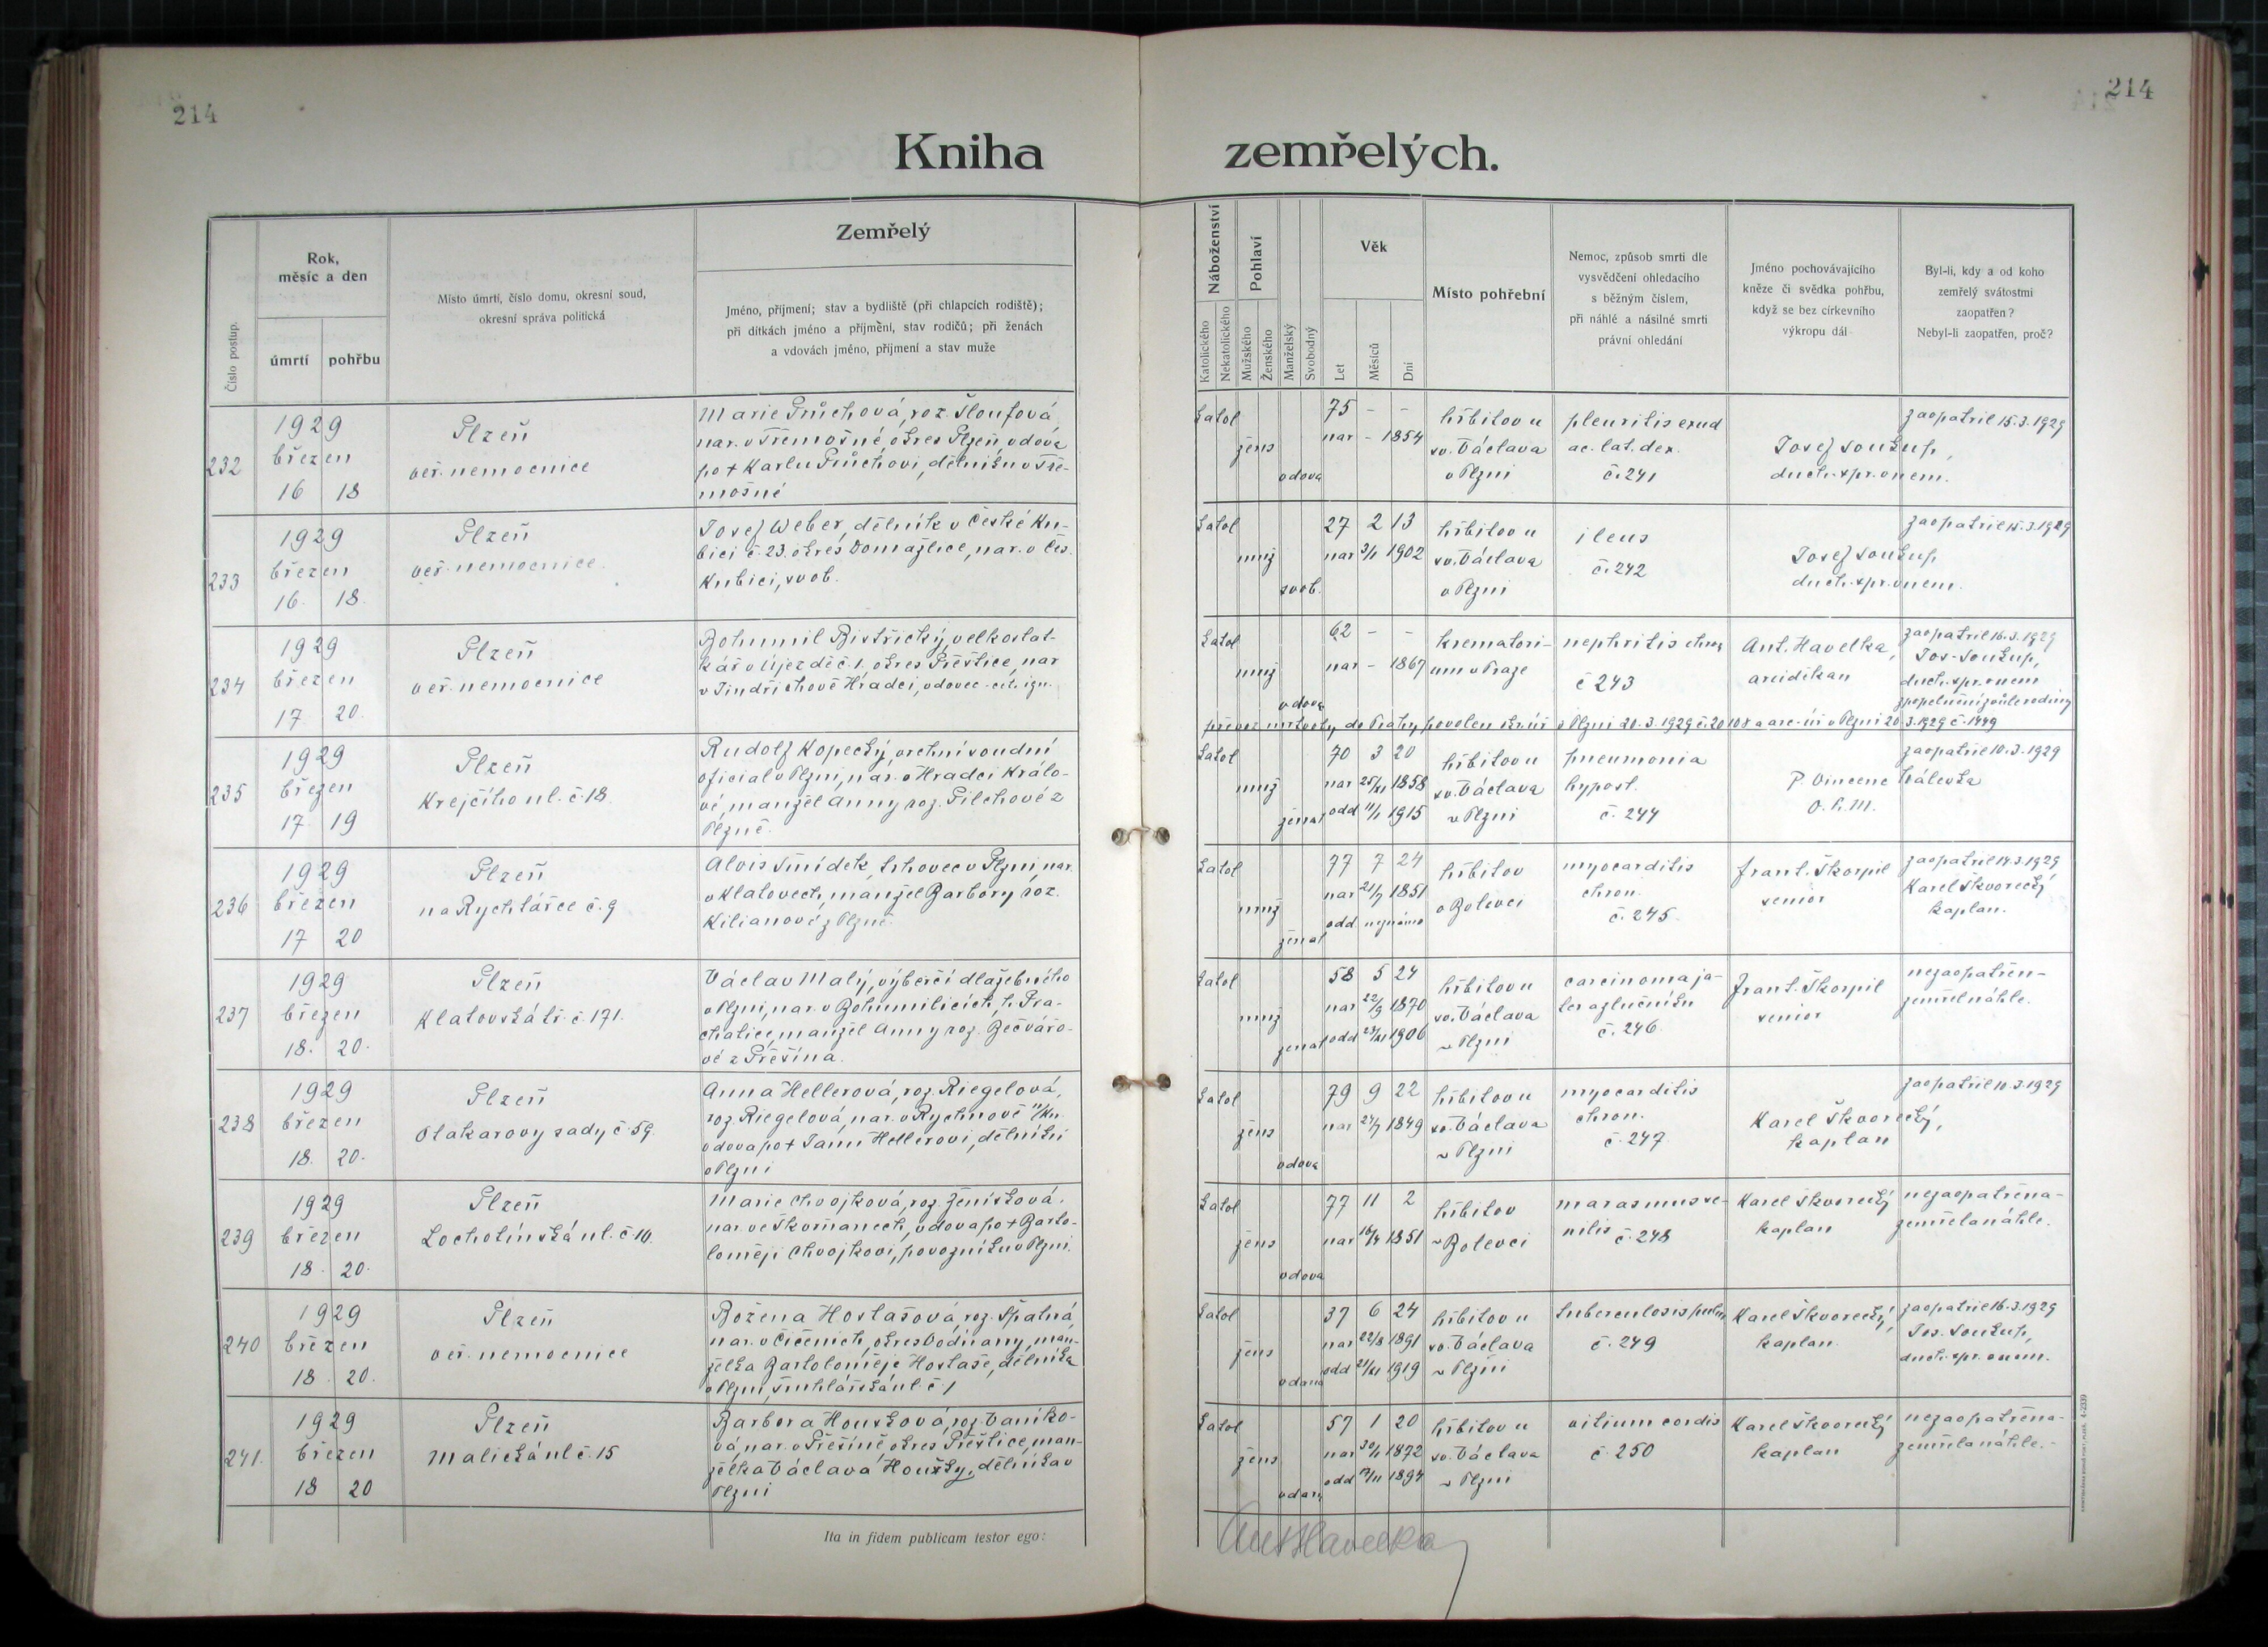 214
214
Kniha zemřelých.
Číslo postup.
Rok,
měsíc a den
úmrtí
pohřbu
Místo úmrtí, číslo domu, okresní soud,
okresní správa politická
Zemřelý
Jméno, příjmení; stav a bydliště (při chlapcích rodiště);
při dítkách jméno a příjmění, stav rodičů; při ženách
a vdovách jméno, příjmení a stav muže
Náboženství
Katolického
Nekatolického
Pohlaví
Mužského
Ženského
Manželský
Svobodný
Věk
Let
Měsíců
Dní
Místo pohřební
Nemoc, způsob smrti dle
vysvědčení ohledacího
s běžným číslem,
při náhlé a násilné smrti
právní ohledání
Jméno pochovávajícího
kněze či svědka pohřbu,
když se bez církevního
výkropu dál
Byl-li, kdy a od koho
zemřelý svátostmi
zaopatřen?
Nebyl-li zaopatřen, proč?
232
1929
březen
16 18
Plzeň
veř. nemocnice
Marie Průchová, roz. Šloufová,
nar. v Třemošné okres Plzeň, vdova
po + Karlu Průchovi, dělníku v Tře-
mošné
katol
žens
vdova
75 - -
nar - 1854
hřbitov u
sv. Václava
v Plzni
pleuritis exud
ac. lat. dex.
č. 241
Josef Soukup,
duch. spr. v nem.
zaopatřil 15.3.1929
233
1929
březen
16. 18.
Plzeň
veř. nemocnice.
Josef Weber, dělník v České Ku-
bici č. 23. okres Domažlice, nar. v Čes.
Kubici, svob.
katol
muž
svob.
27 2 13
nar 3/1 1902
hřbitov u
sv. Václava
v Plzni
ileus
č. 242
Josef Soukup
duch. spr. v nem.
zaopatřil 15.3.1929
234
1929
březen
17. 20.
Plzeň
veř. nemocnice
Bohumil Bistřický, velkostat-
kář v Újezdě č. 1. okres Přeštice, nar
v Jindřichově Hradci, vdovec
katol
muž
vdovec
62 - -
nar - 1867
krematori-
um v Praze
nephritis chron
č 243
Ant. Havelka,
arciděkan
zaopatřil 16.3.1929
Jos. Soukup,
duch. spr. v nem
zpopelnění z vůle rodiny
převoz mrtvoly do Prahy povolen v Plzni 20.3.1929 v Plzni 20.3.1929 č. 1449
235
1929
březen
17 19
Plzeň
Krejčího ul. č. 18.
Rudolf Kopecký, vrchní soudní
oficial v Plzni, nar. v Hradci Králo-
vé, manžel Anny roz. Pilchové z
Plzně.
katol
muž
ženat
70 3 20
nar 25/XI 1858
odd 11/1 1915
hřbitov u
sv. Václava
v Plzni
pneumonia
hypost.
č. 244
P. Vincenc Válevka
O. P. M.
zaopatřil 10.3.1929
236
1929
březen
17 20
Plzeň
na Rychtářce č. 9
Alois Šmídek, trhovec v Plzni, nar.
v Klatovech, manžel Barbory roz.
Kilianové z Plzně.
katol
muž
ženat
77 7 24
nar 21/7 1851
odd neznámo
hřbitov
v Bolevci
myocarditis
chron.
č. 245
Frant. Škorpil
senior
zaopatřil 14.3.1929
Karel Škvorecký
kaplan.
237
1929
březen
18. 20.
Plzeň
Klatovská tř. č. 171.
Václav Malý, výberčí dlažebného
v Plzni, nar. v Bohumilicích, h. Pra-
chatice, manžel Anny roz. Bečváro-
vé z Přešína.
katol
muž
ženat
58 5 24
nar 22/9 1870
odd 1906
hřbitov u
sv. Václava
v Plzni
carcinoma ja-
ter a žlučníku
č. 246
Frant. Škorpil
senior
nezaopatřen-
zemřel náhle.
238
1929
březen
18. 20.
Plzeň
Otakarovy sady č. 59
Anna Hellerová, roz. Riegelová,
roz. Riegelová, nar. v Rychnově n/Kn.
vdova po + Janu Hellerovi, dělníku
v Plzni
katol
žens
vdova
79 9 22
nar 1849
hřbitov u
sv. Václava
v Plzni
myocarditis
chron.
č. 247
Karel Škvorecký,
kaplan
zaopatřil 10.3.1929
239
1929
březen
18. 20.
Plzeň
Lochotínská ul. č. 10.
Marie Chvojková, roz. Ženíšková.
nar. ve Skvrňanech, vdova po + Barto-
loměji Chvojkovi, povozníku v Plzni.
katol
žens
vdova
77 11 2
nar 16/4 1851
hřbitov
v Bolevci
marasmus se-
nilis č. 248
Karel Škvorecký
kaplan
nezaopatřena-
zemřela náhle.
240
1929
březen
18. 20.
Plzeň
veř. nemocnice
Božena Hostašová, roz. Špatná,
nar. v Čičenicích, okres Vodňany, man-
želka Bartoloměje Hostaše, dělníka
v Plzni, Truhlářská ul. č. 1
katol
žens
vdaná
37 6 24
nar 22/8 1891
odd 21/XI 1919
hřbitov u
sv. Václava
v Plzni
tuberculosis pulm
č. 249
Karel Škvorecký,
kaplan.
zaopatřil 16.3.1929
Jos. Soukup,
duch. spr. v nem.
241.
1929
březen
18 20
Plzeň
Malická ul č. 15
Barbora Houšková, roz. Vaníko-
vá, nar. v Přešíně okres Přeštice, man-
želka Václava Houšky, dělníka v
Plzni
katol
žens
vdaná
57 1 20
nar 1872
odd 1894
hřbitov u
sv. Václava
v Plzni
vitium cordis
č. 250
Karel Škvorecký
kaplan
nezaopatřena-
zemřela náhle.-
Ita in fidem publicam testor ego:
Ant Havelka